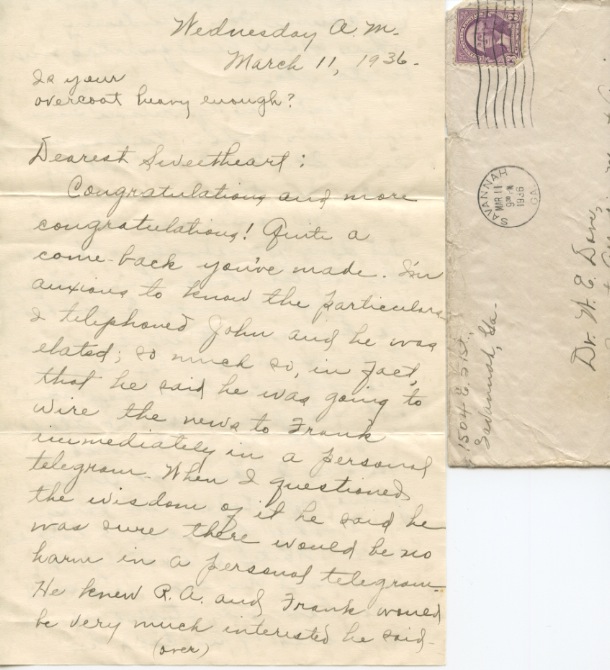 Wednesday A.M.
March 11, 1936.
Is your
overcoat heavy enough?
Dearest Sweetheart:
Congratulations and more
congratulations! Quite a
come-back you've made. I'm
anxious to know the particulars
I telephoned John and he was
elated; so much so, in fact,
that he said he was going to
wire the news to Frank
immediately in a personal
telegram. When I questioned
the wisdom of it he said he
was sure there would be no
harm in a personal telegram
He knew R.A. and Frank would
be very much interested he said-
(over)
SAVANNAH
MAR 11
1936
GA.
Dr. W. E. Dove,
1504 E. 51 St.,
Savannah, Ga.